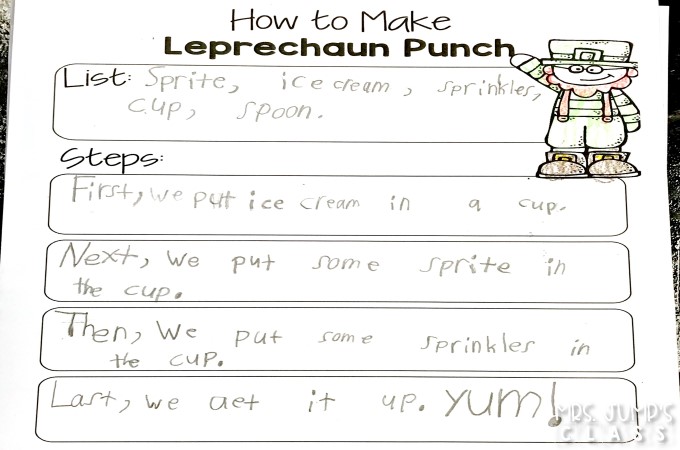 How to Make
Leprechaun Punch
List: Sprite, ice cream, sprinkles,
cup, spoon.
Steps:
First, we put ice cream in a cup.
Next, we put some sprite in
the cup.
Then, we put some sprinkles in
the cup.
Last, we aet it up. Yum!
MRS. JUMP'S
CLASS